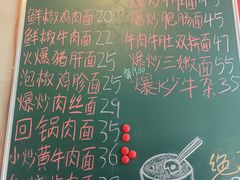 鲜椒鸡肉面20
鲜椒牛肉面22
火爆猪肝面25
泡椒鸡胗面25
爆炒肉丝面29
回锅肉面35
小炒黄牛肉面36
爆炒肥肠面45
牛肉牛肚双拼面47
爆炒三嫩面55
爆炒牛
35